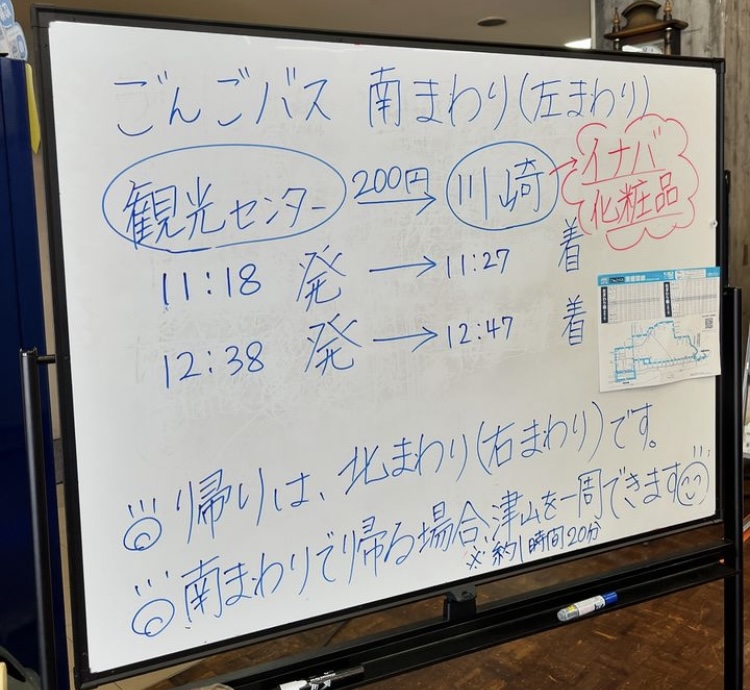 ごんごバス 南まわり(左まわり)
観光センター 200円→ 川崎 → イナバ化粧品
11:18 発 → 11:27 着
12:38 発 → 12:47 着
帰りは、北まわり(右まわり)です。
南まわりで帰る場合、津山を一周できます
※約1時間20分